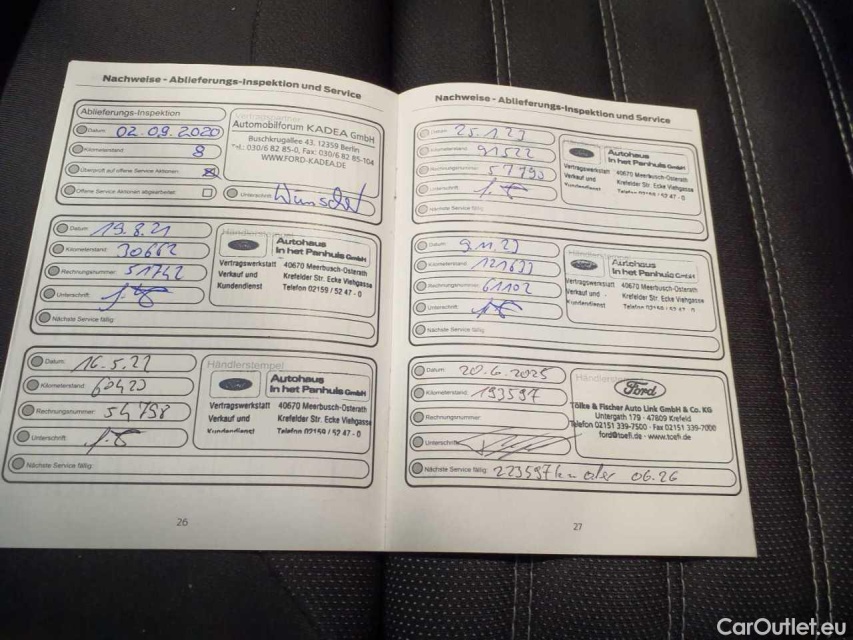 Nachweise - Ablieferungs-Inspektion und Service
Ablieferungs-Inspektion
Datum: 02.09.2020
Kilometerstand: 8
Überprüft auf offene Service Aktionen:
Offene Service Aktionen abgearbeitet:
Automobilforum KADEA GmbH
Buschkrugallee 43, 12359 Berlin
Tel.: 030/6 82 85-0, Fax: 030/6 82 85-104
WWW.FORD-KADEA.DE
Unterschrift:
Datum: 19.8.21
Kilometerstand: 30662
Rechnungsnummer: 51742
Unterschrift:
Nächste Service fällig:
Händlerstempel
Autohaus
In het Panhuis GmbH
Vertragswerkstatt 40670 Meerbusch-Osterath
Verkauf und Krefelder Str. Ecke Viehgasse
Kundendienst Telefon 02159 / 52 47 - 0
Datum: 16.5.22
Kilometerstand: 60423
Rechnungsnummer: 54798
Unterschrift:
Nächste Service fällig:
Händlerstempel
Autohaus
In het Panhuis GmbH
Vertragswerkstatt 40670 Meerbusch-Osterath
Verkauf und Krefelder Str. Ecke Viehgasse
Kundendienst Telefon 02159 / 52 47 - 0
26
Nachweise - Ablieferungs-Inspektion und Service
Datum: 25.1.23
Kilometerstand: 91522
Rechnungsnummer: 57790
Unterschrift:
Nächste Service fällig:
Autohaus
In het Panhuis GmbH
Vertragswerkstatt 40670 Meerbusch-Osterath
Verkauf und Krefelder Str. Ecke Viehgasse
Kundendienst Telefon 02159 / 52 47 - 0
Datum: 9.11.23
Kilometerstand: 121633
Rechnungsnummer: 61102
Unterschrift:
Nächste Service fällig:
Autohaus
In het Panhuis GmbH
Vertragswerkstatt 40670 Meerbusch-Osterath
Verkauf und Krefelder Str. Ecke Viehgasse
Kundendienst Telefon 02159 / 52 47 - 0
Datum: 20.6.2025
Kilometerstand: 193597
Rechnungsnummer:
Unterschrift:
Nächste Service fällig: 223597 km oder 06.26
Ford
Tölke & Fischer Auto Link GmbH & Co. KG
Untergath 179 - 47809 Krefeld
Telefon 02151 339-7500 - Fax 02151 339-7000
ford@toefi.de - www.toefi.de
27
CarOutlet.eu